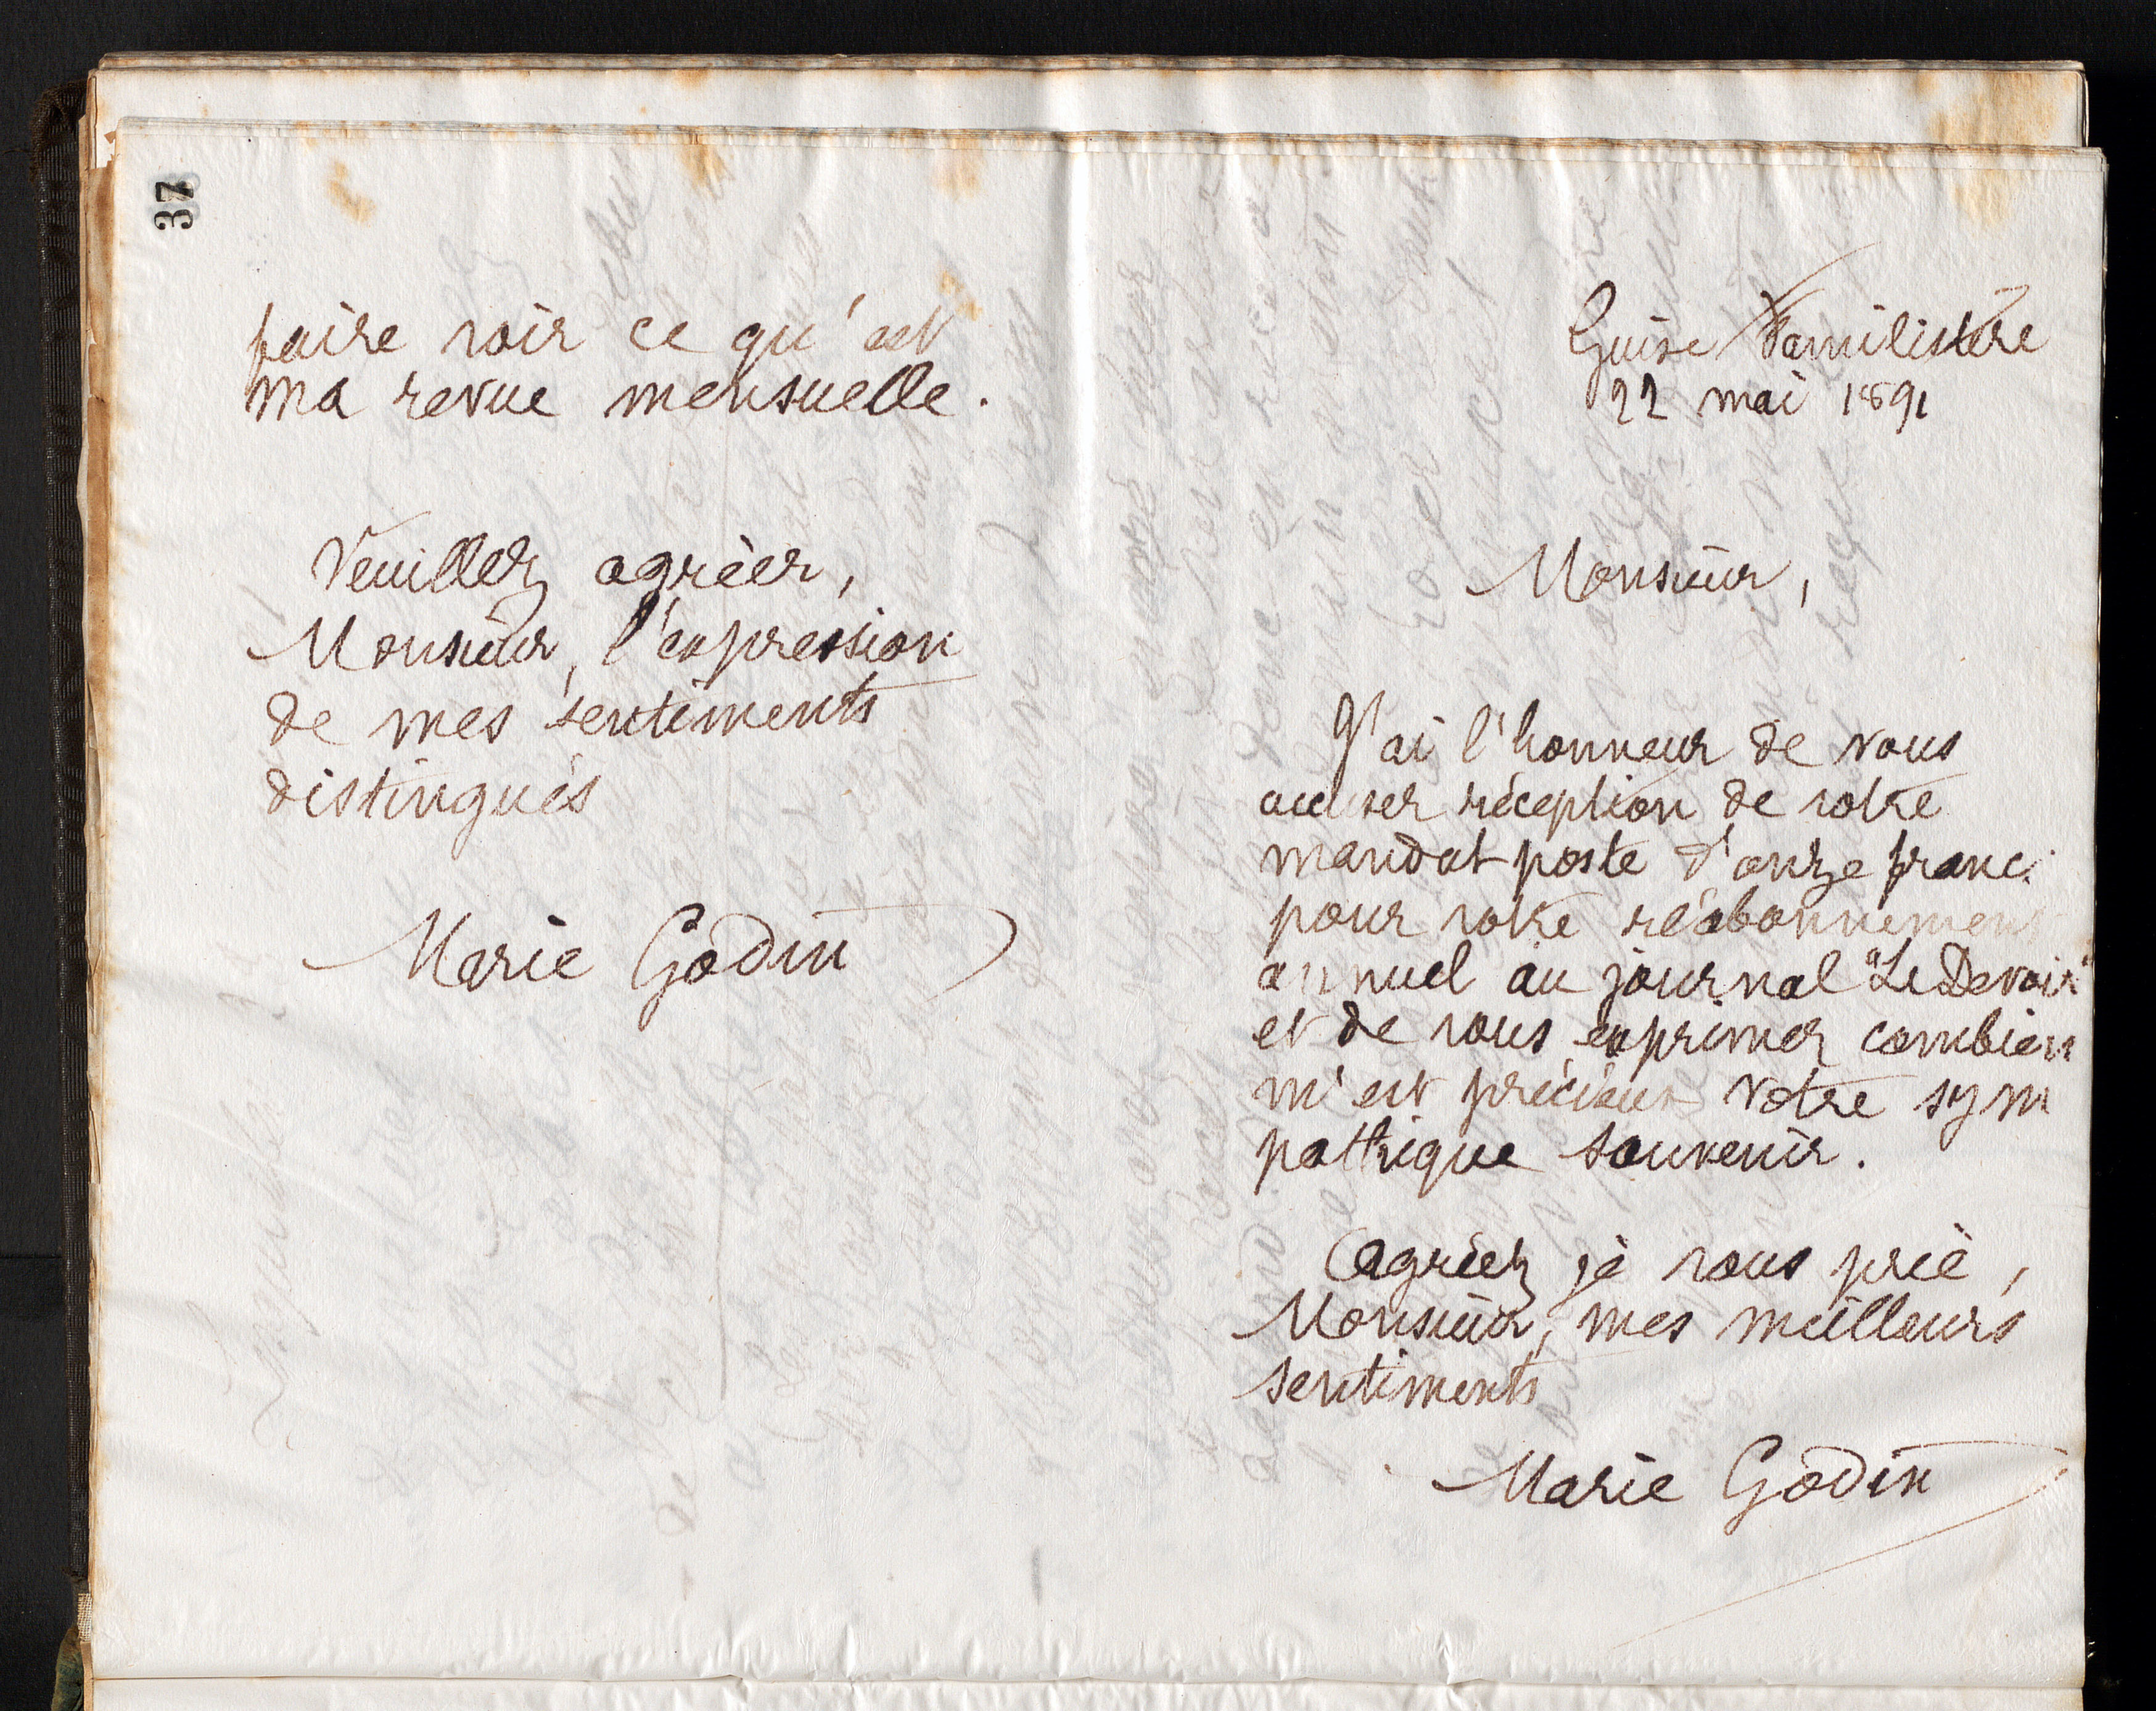 37
faire voir ce qu'est
ma revue mensuelle.
Veuillez agréer,
Monsieur, l'expression
de mes sentiments
distingués
Marie Godin
Guise Familistère
22 mai 1891
Monsieur,
J'ai l'honneur de vous
accuser réception de votre
mandat poste d'onze francs
pour votre réabonnement
annuel au journal "Le Devoir"
et de vous exprimer combien
m'est précieux votre sym
pathique souvenir.
Agréez, je vous prie,
Monsieur, mes meilleurs
sentiments
Marie Godin